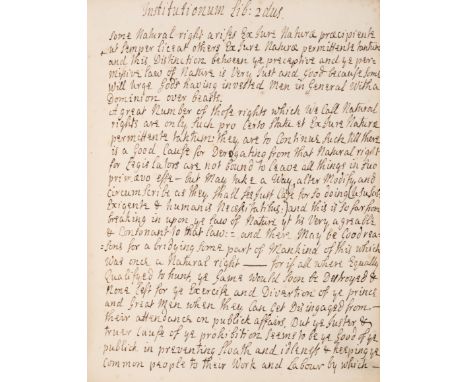 Institutionum lib: 2dus.
Some Natural right arises Ex Jure Naturæ præcipiente
ut Semper liceat others Ex Jure Naturæ permittente tantum
and this Distinction between ye preceptive and ye per
missive law of Nature is Very Just and Good because some
will Urge Gods having invested Men in General With a
Dominion over beasts.
A great Number of those rights which We Call Natural
rights are only such pro Certo Statu et Ex Jure Naturæ
permittente tantum they are to Continue such till there
is a Good Cause for Derogating from that Natural right
for Legislators are not bound to leave all things in suo
primævo esse - but May take a Way, alter Modify, and
Circumscribe as they shall see just Cause for so doing
Exigente & humanis Necessitatibus. and this is so far from
breaking in upon ye law of Nature yt tis Very agreable
& Consonant to that law := and there May be Good rea=
=sons for abridging some part of Mankind of this which
was once a Natural right — for if all where Equally
Qualifyed to hunt, ye Game would soon be Destroyed &
None left for ye Exercise and Divertion of ye princes
and Great Men when they Can Get Disingaged from —
their attendance on publick affairs. But ye Juster &
truer Cause of ye prohibition Seems to be ye Good of ye
publick in preventing Sloath and idleness & keeping ye
Common people to their Work and Labour by which —